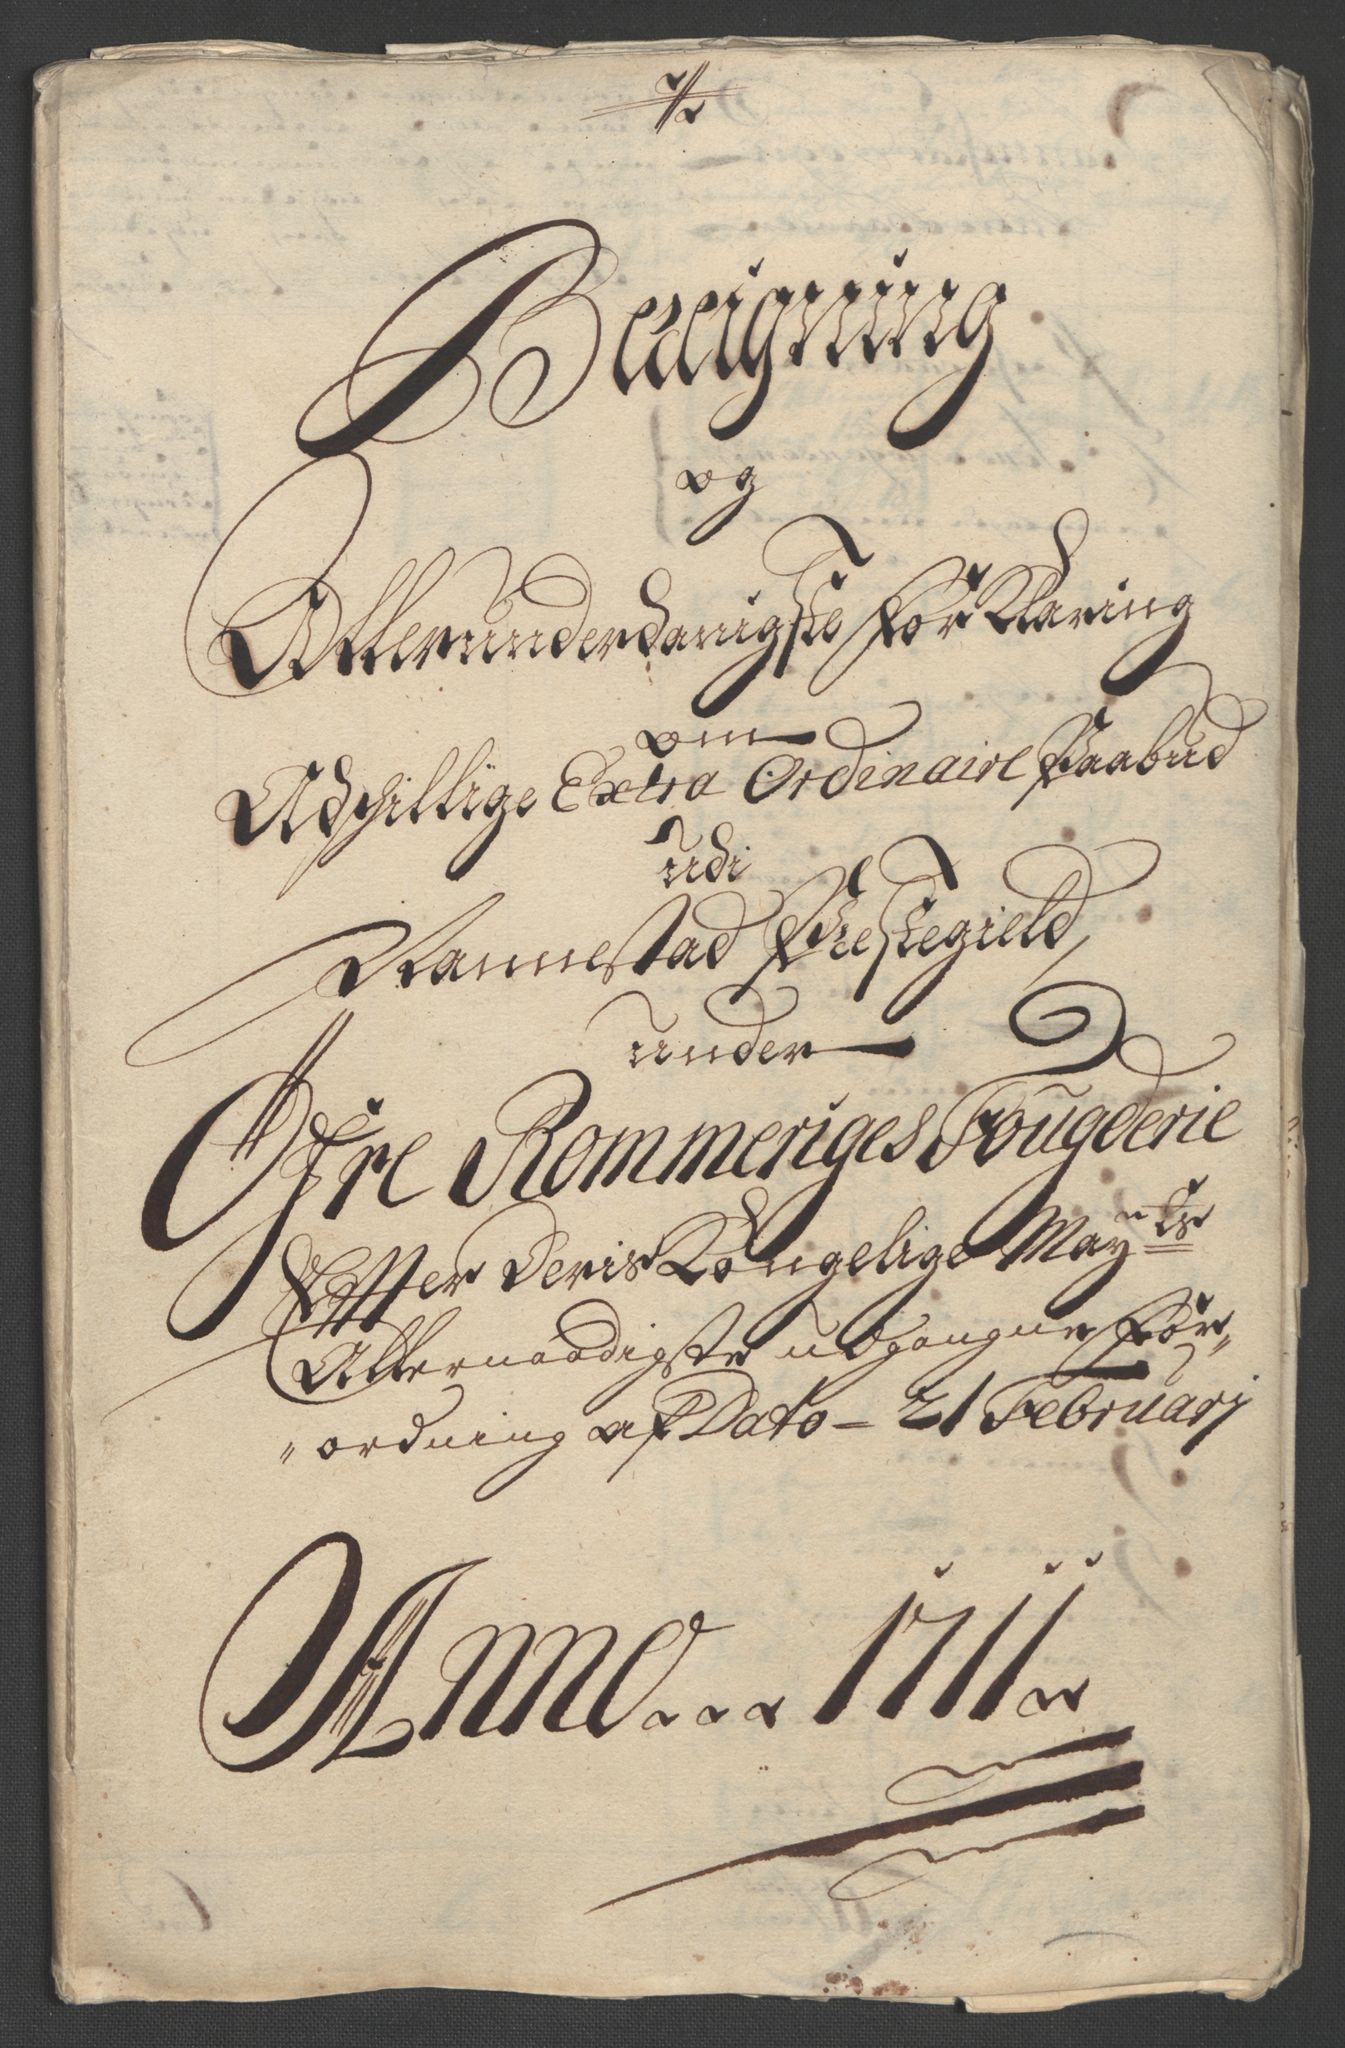 Bereigning
og
Allerunderdanigste forKlaring
om
Adschillige Extra Ordinaire Paabud
udi
Nannestad Prestegield
under
Ofre Rommeriges Fougderie
Effter Deris Kongelige Mayts
Allernaadigste udgangne For„
„ordning af Dato – 21 Februarj
Anno... 1711..